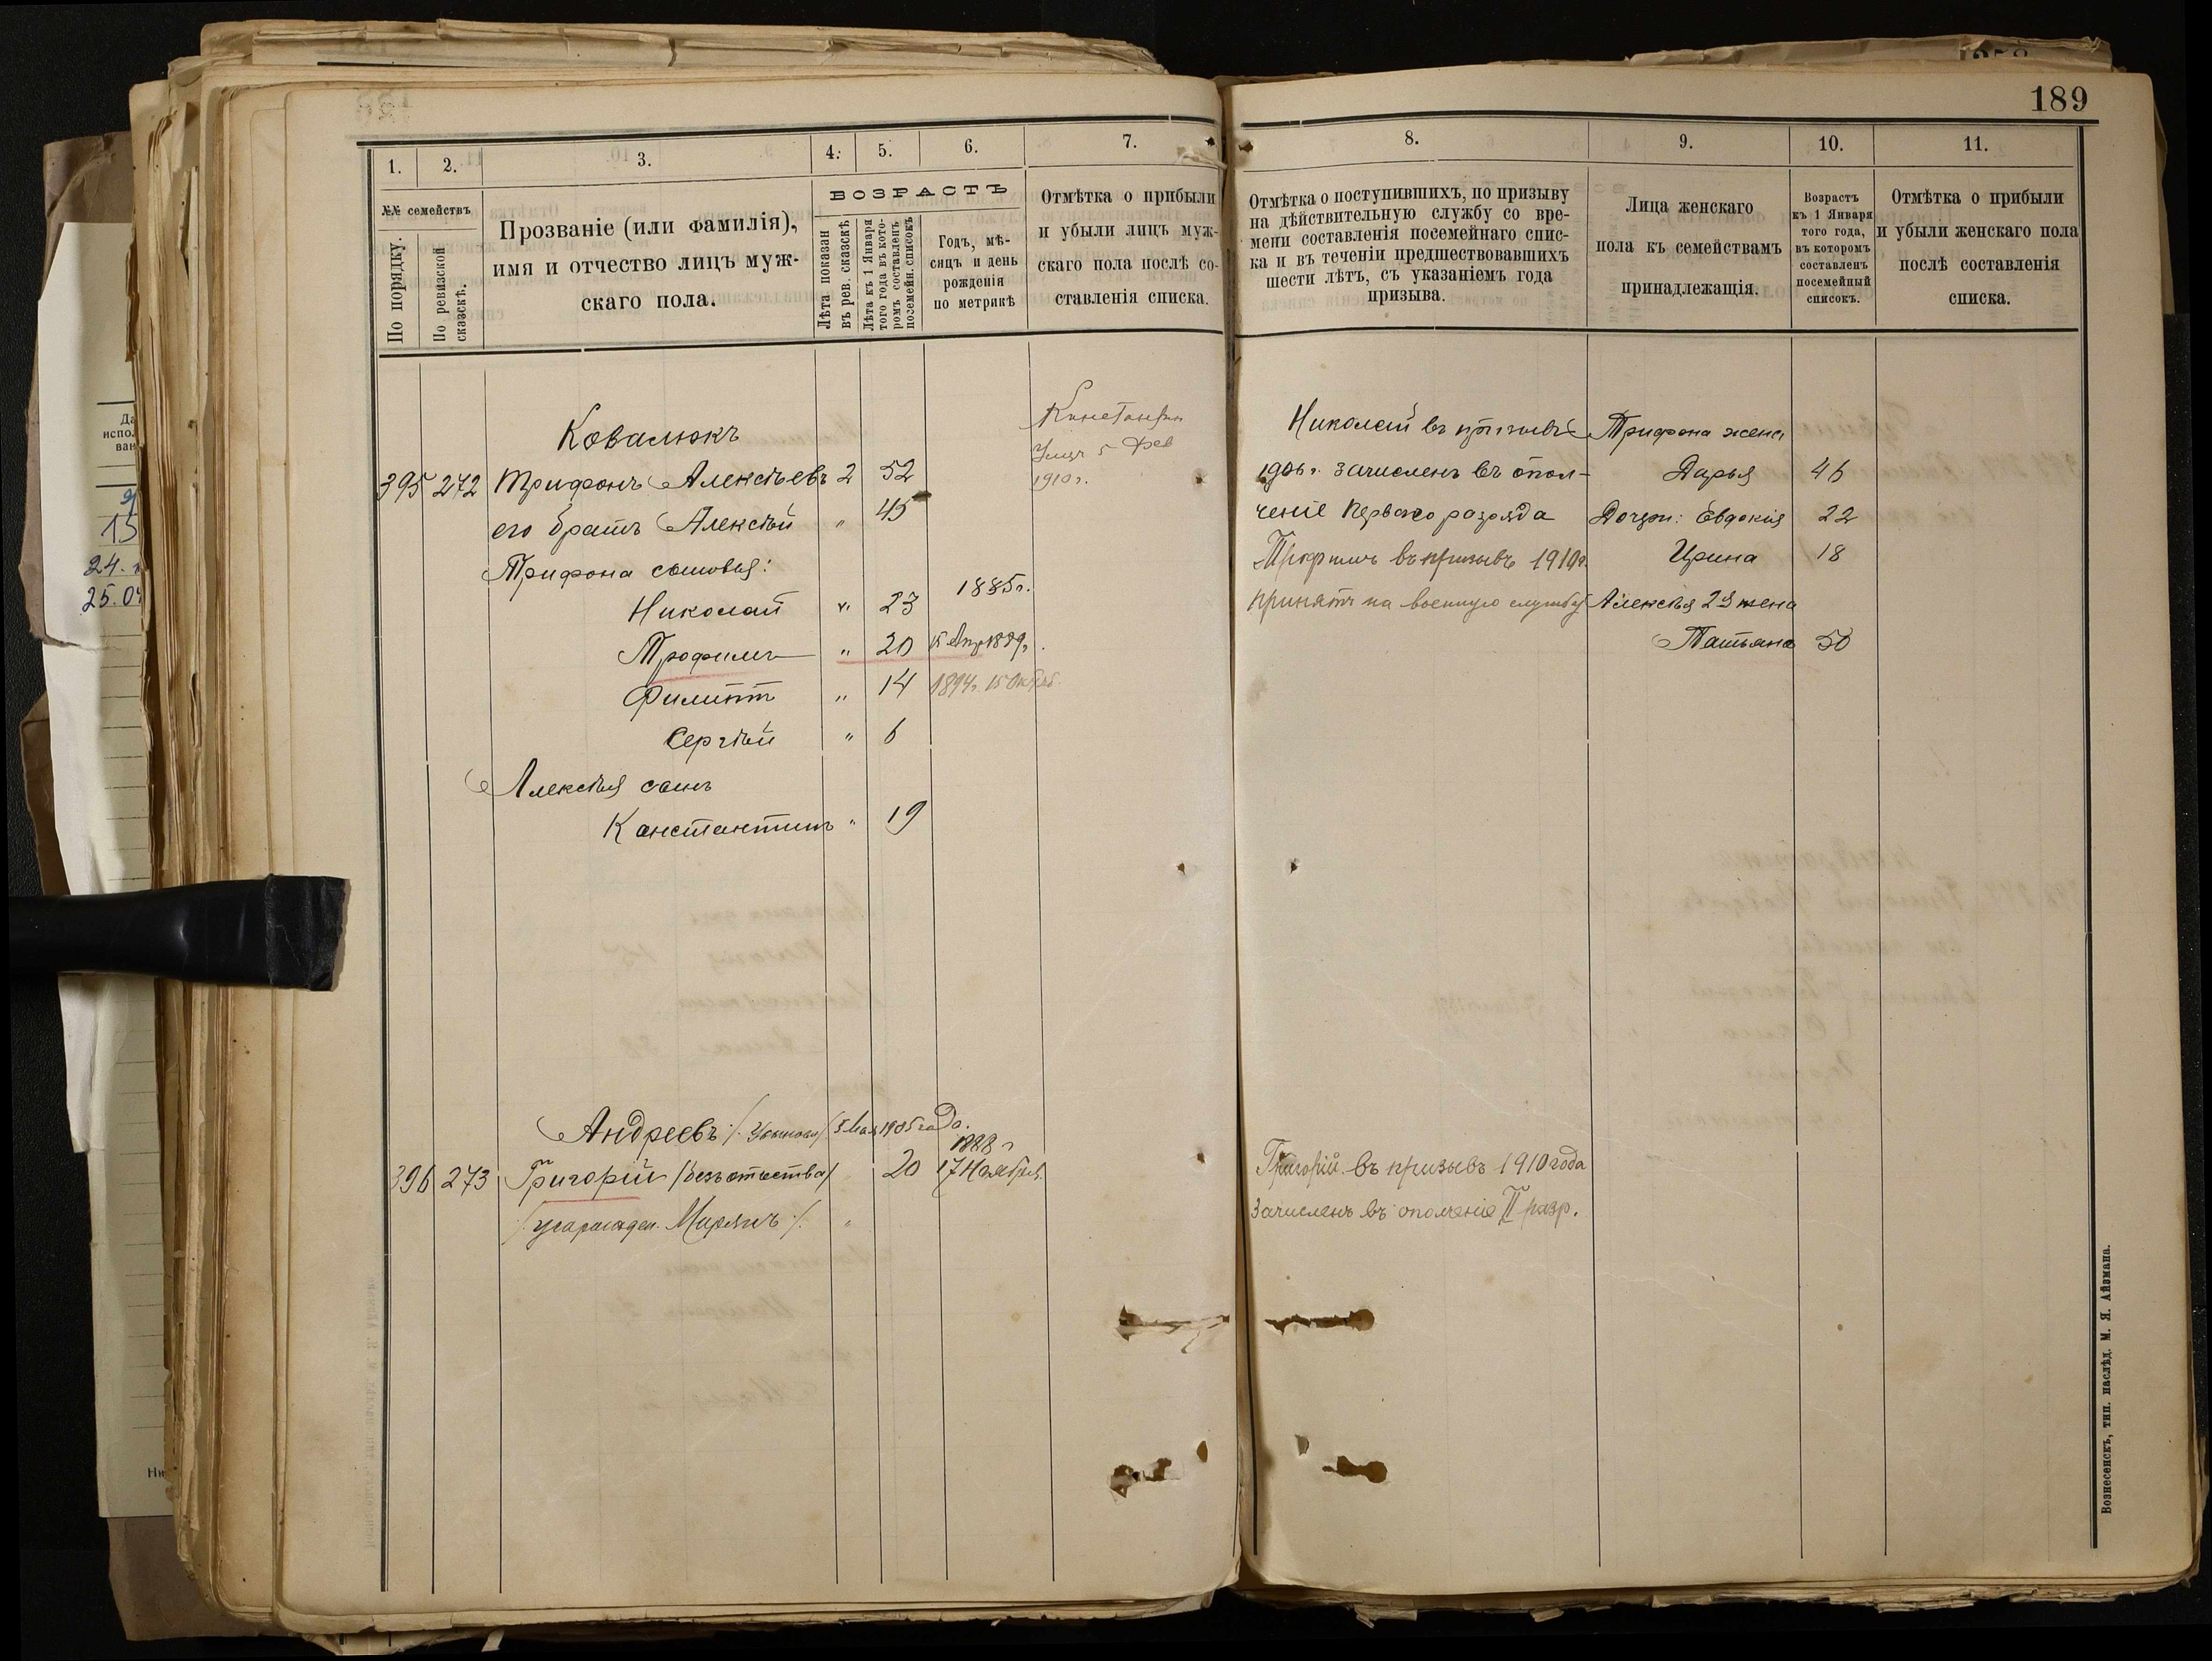 189
1.
2.
3.
4.
5.
6.
7.
8.
9.
10.
11.
№№ семействъ
По порядку.
По ревизской сказскѣ.
Прозваніе (или фамилія),
имя и отчество лицъ муж-
скаго пола.
ВОЗРАСТЪ
Лѣта показан въ рев. сказскѣ
Лѣта къ 1 Января того года въ кото- ромъ составленъ посемейн. списокъ
Годъ, мѣ-
сяцъ и день
рожденія
по метрикѣ
Отмѣтка о прибыли
и убыли лицъ муж-
скаго пола послѣ со-
ставленія списка.
Отмѣтка о поступившихъ, по призыву
на дѣйствительную службу со вре-
мени составленія посемейнаго спис-
ка и въ теченіи предшествовавшихъ
шести лѣтъ, съ указаніемъ года
призыва.
Лица женскаго
пола къ семействамъ
принадлежащія.
Возрастъ
къ 1 Января
того года,
въ которомъ
составленъ
посемейный
списокъ.
Отмѣтка о прибыли
и убыли женскаго пола
послѣ составленія
списка.
Ковалюкъ
395 272 Трифонъ Алексѣевъ 2 52
его братъ Алексѣй " 45
Трифона сыновья:
Николай " 23 1885г.
Трофимъ " 20 15 Апр 1889г.
Филиппъ " 14 1894г. 15 Октяб.
Сергѣй " 6
Алексѣя сынъ
Канстантинъ " 19
Константин
5 Фев
1910г.
Николай въ призывѣ
1906г. зачисленъ въ опол-
ченіе перваго разряда
Трофимъ въ призывъ 1910г.
принятъ на военную службу
Трифона жена
Дарья 46
Дочери: Евдокія 22
Ирина 18
Алексѣя 2я жена
Татьяна 50
Андреевъ /. /5 Мая 1905 года.
396 273 Григорій /безъ отчества/ 20 1888 г
17 Ноября
"
Григорій въ призывъ 1910 года
Зачисленъ въ ополченіе II разр.
Вознесенскъ, тип. наслѣд. М. Я. Айзмана.
Да
испол
ван
15
24.
25.0